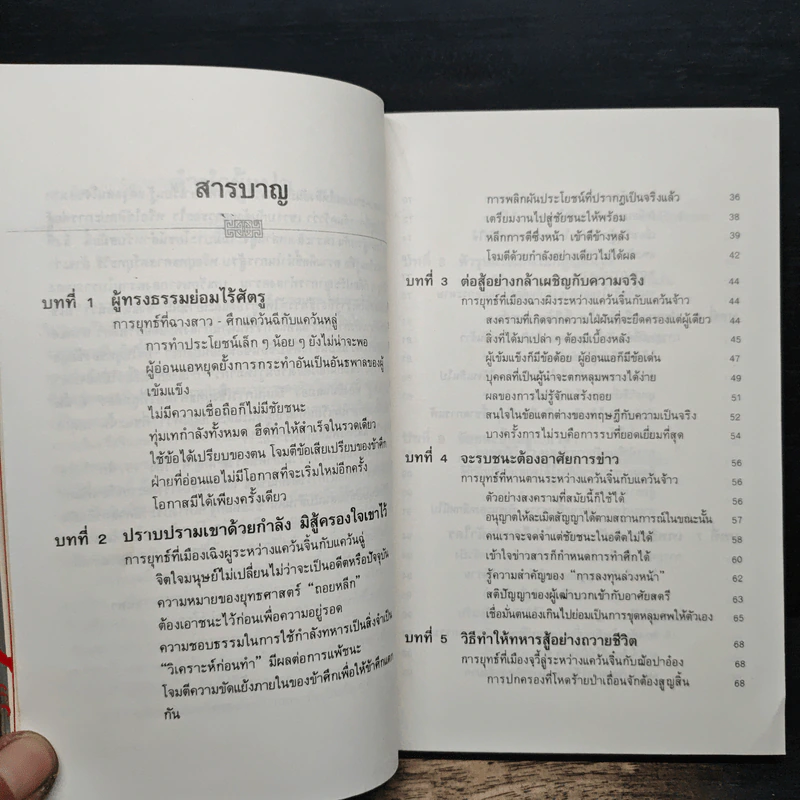 สารบาญ
บทที่ 1 ผู้ทรงธรรมย่อมไร้ศัตรู
การยุทธ์ที่ฉางสาว - ศึกแคว้นฉีกับแคว้นหลู่
การทำประโยชน์เล็ก ๆ น้อย ๆ ยังไม่น่าจะพอ
ผู้อ่อนแอหยุดยั้งการกระทำอันเป็นอันธพาลของผู้
เข้มแข็ง
ไม่มีความเชื่อถือก็ไม่มีชัยชนะ
ทุ่มเทกำลังทั้งหมด ฮึดทำให้สำเร็จในรวดเดียว
ใช้ข้อได้เปรียบของตน โจมตีข้อเสียเปรียบของข้าศึก
ฝ่ายที่อ่อนแอไม่มีโอกาสที่จะเริ่มใหม่อีกครั้ง
โอกาสมีได้เพียงครั้งเดียว
บทที่ 2 ปราบปรามเขาด้วยกำลัง มิสู้ครองใจเขาไว้
การยุทธ์ที่เมืองเฉิงผูระหว่างแคว้นจิ้นกับแคว้นฉู่
จิตใจมนุษย์ไม่เปลี่ยนไม่ว่าจะเป็นอดีตหรือปัจจุบัน
ความหมายของยุทธศาสตร์ “ถอยหลีก”
ต้องเอาชนะไว้ก่อนเพื่อความอยู่รอด
ความชอบธรรมในการใช้กำลังทหารเป็นสิ่งจำเป็น
“วิเคราะห์ก่อนทำ” มีผลต่อการแพ้ชนะ
โจมตีความขัดแย้งภายในของข้าศึกเพื่อให้ข้าศึกแตก
กัน
การพลิกผันประโยชน์ที่ปรากฏเป็นจริงแล้ว 36
เตรียมงานไปสู่ชัยชนะให้พร้อม 38
หลีกการตีซึ่งหน้า เข้าตีข้างหลัง 39
โจมตีด้วยกำลังอย่างเดียวไม่ได้ผล 42
บทที่ 3 ต่อสู้อย่างกล้าเผชิญกับความจริง 44
การยุทธ์ที่เมืองฉางผิงระหว่างแคว้นจิ๋นกับแคว้นจ้าว 44
สงครามที่เกิดจากความใฝ่ฝันที่จะยึดครองแต่ผู้เดียว 44
สิ่งที่ได้มาเปล่า ๆ ต้องมีเบื้องหลัง 45
ผู้เข้มแข็งก็มีข้อด้อย ผู้อ่อนแอก็มีข้อเด่น 47
บุคคลที่เป็นผู้นำจะตกหลุมพรางได้ง่าย 49
ผลของการไม่รู้จักแสร้งถอย 51
สนใจในข้อแตกต่างของทฤษฎีกับความเป็นจริง 52
บางครั้งการไม่รบคือการรบที่ยอดเยี่ยมที่สุด 54
บทที่ 4 จะรบชนะต้องอาศัยการข่าว 56
การยุทธ์ที่หานตานระหว่างแคว้นจิ๋นกับแคว้นจ้าว 56
ตัวอย่างสงครามที่สมัยนี้ก็ใช้ได้ 56
อนุญาตให้ละเมิดสัญญาได้ตามสถานการณ์ในขณะนั้น 57
คนเราจะจดจำแต่ชัยชนะในอดีตไม่ได้ 58
เข้าใจข่าวสารก็กำหนดการทำศึกได้ 60
รู้ความสำคัญของ “การลงทุนล่วงหน้า” 62
สติปัญญาของผู้เฒ่าบวกเข้ากับอาศัยสตรี 63
เชื่อมั่นตนเองเกินไปย่อมเป็นการขุดหลุมศพให้ตัวเอง 65
บทที่ 5 วิธีทำให้ทหารสู้อย่างถวายชีวิต 68
การยุทธ์ที่เมืองจวี้ลู่ระหว่างแคว้นจิ๋นกับฌ้อปาอ๋อง 68
การปกครองที่โหดร้ายป่าเถื่อนจักต้องสูญสิ้น 68